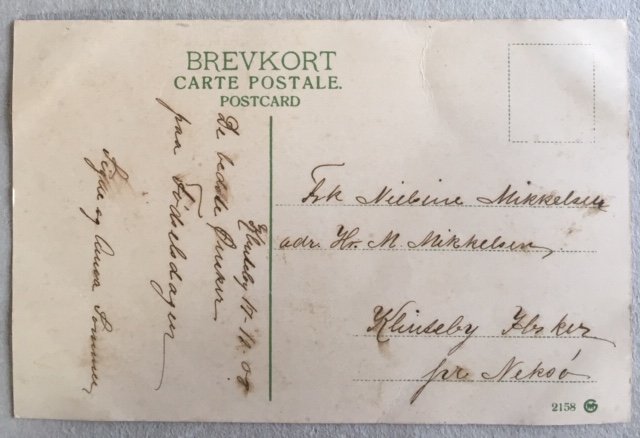 BREVKORT
CARTE POSTALE.
POSTCARD
De bedste Ønsker
paa Fødselsdagen
Signe og Anna
Frk Nielsine Mikkelsen
adr. Hr. M. Mikkelsen
Klinteby Ibsker
pr. Neksø
2158